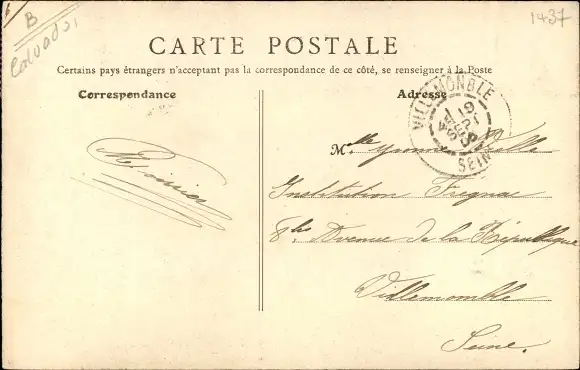 B
Calvados
1437
CARTE POSTALE
Certains pays étrangers n'acceptant pas la correspondance de ce côté, se renseigner à la Poste
Correspondance
Adresse
VILLEMONBLE
19
SEINE
Mlle Yvonne
Institution Fregnac
8bis Avenue de la République
Villemomble
Seine.